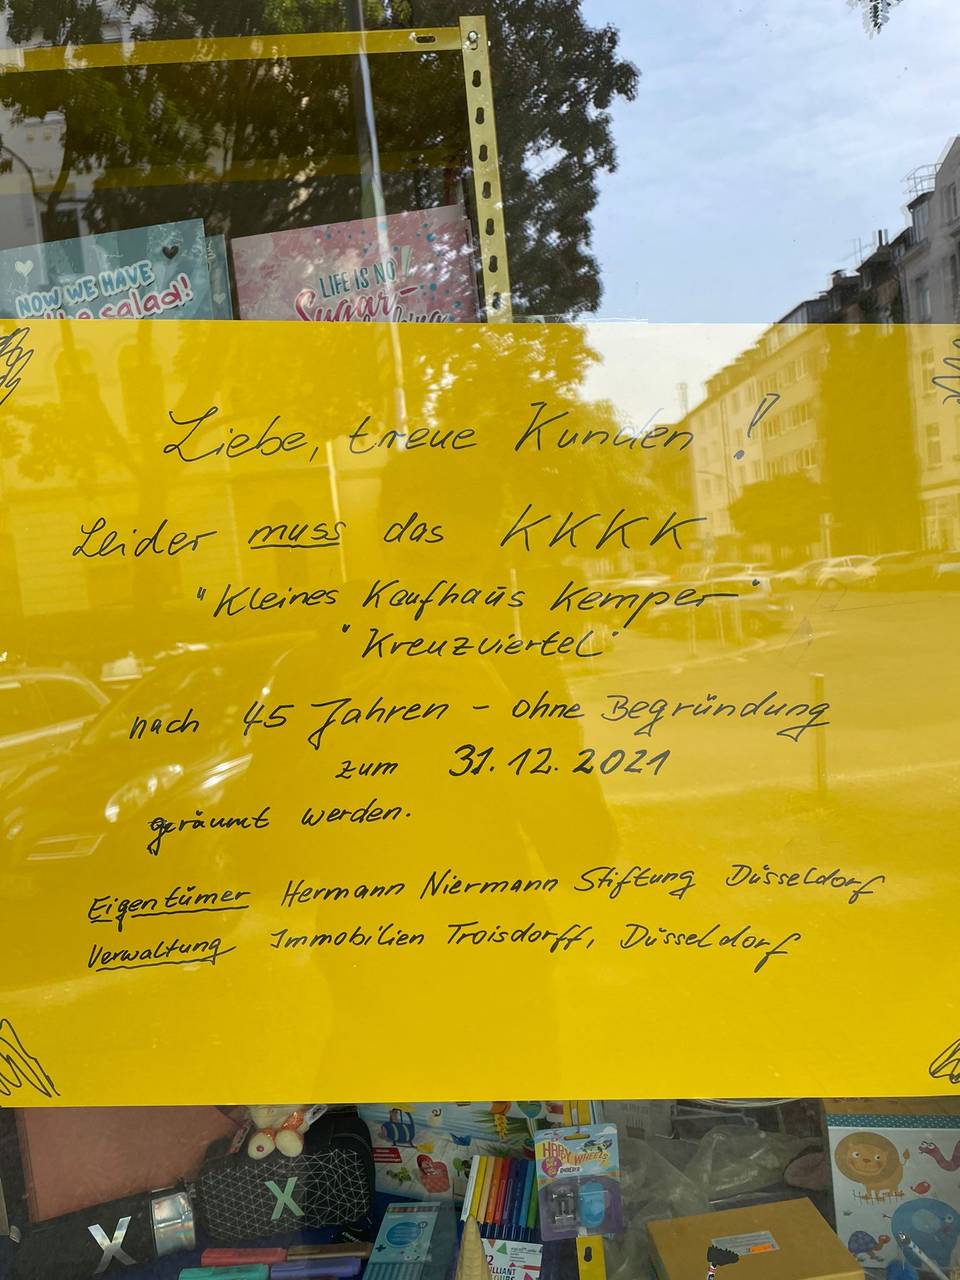 NOW WE HAVE
the salad!
LIFE IS NO
Sugar-
Liebe, treue Kunden!
Leider muss das KKKK
"Kleines Kaufhaus Kemper"
"Kreuzviertel"
nach 45 Jahren - ohne Begründung
zum 31.12.2021
geräumt werden.
Eigentümer Hermann Niermann Stiftung Düsseldorf
Verwaltung Immobilien Troisdorff, Düsseldorf
HAPPY WHEELS
X
X